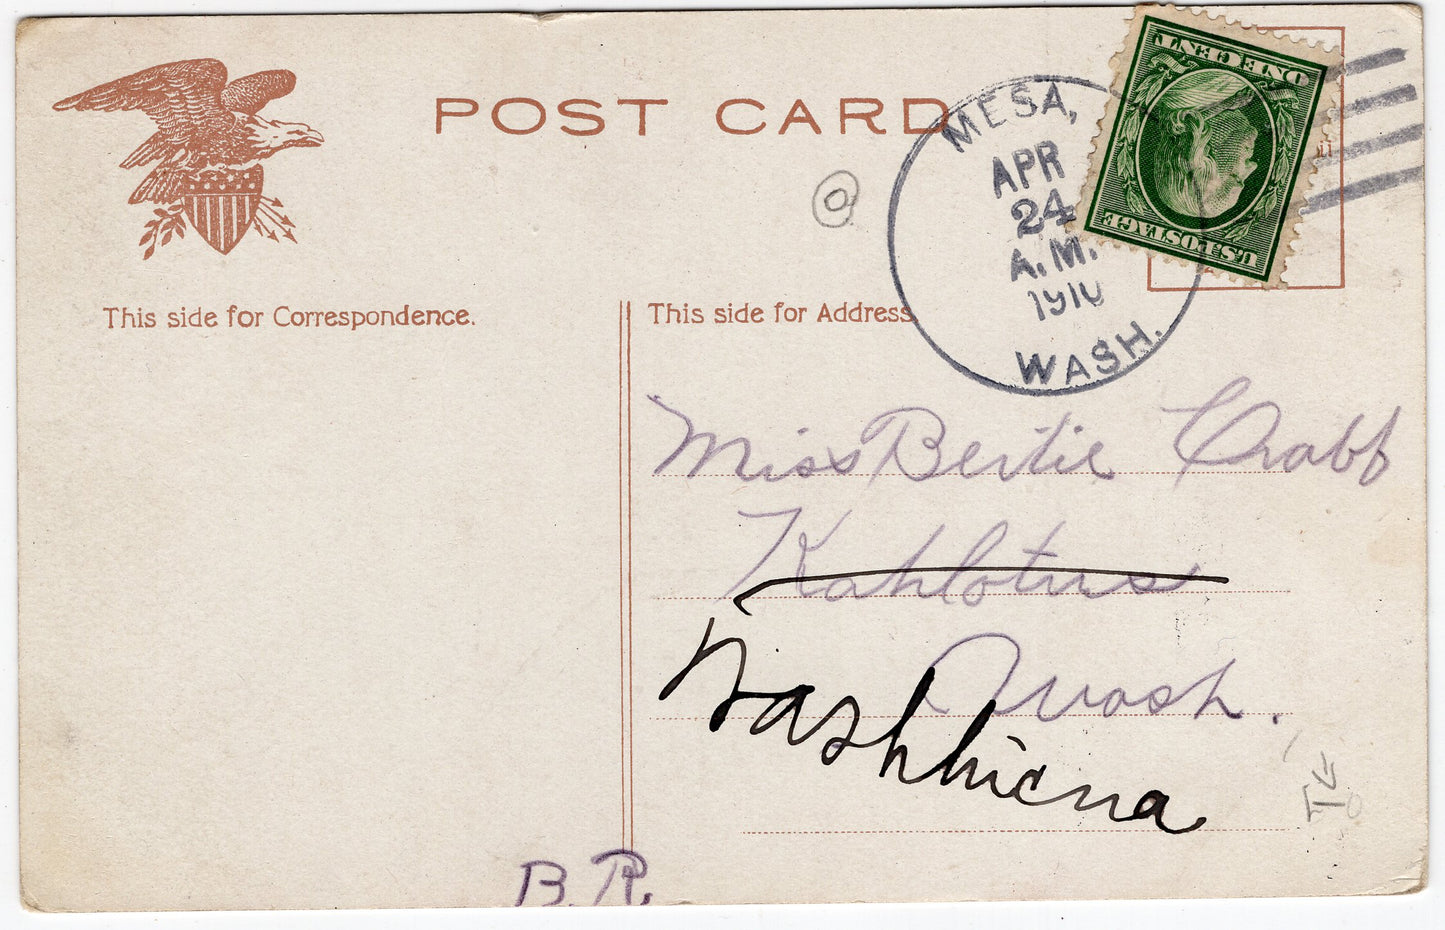 POST CARD
MESA,
APR
24
A.M.
1910
WASH.
ONE CENT
U.S. POSTAGE
This side for Correspondence.
This side for Address.
Miss Bertie Crabb
Kahlotus
Wash.
B. R.